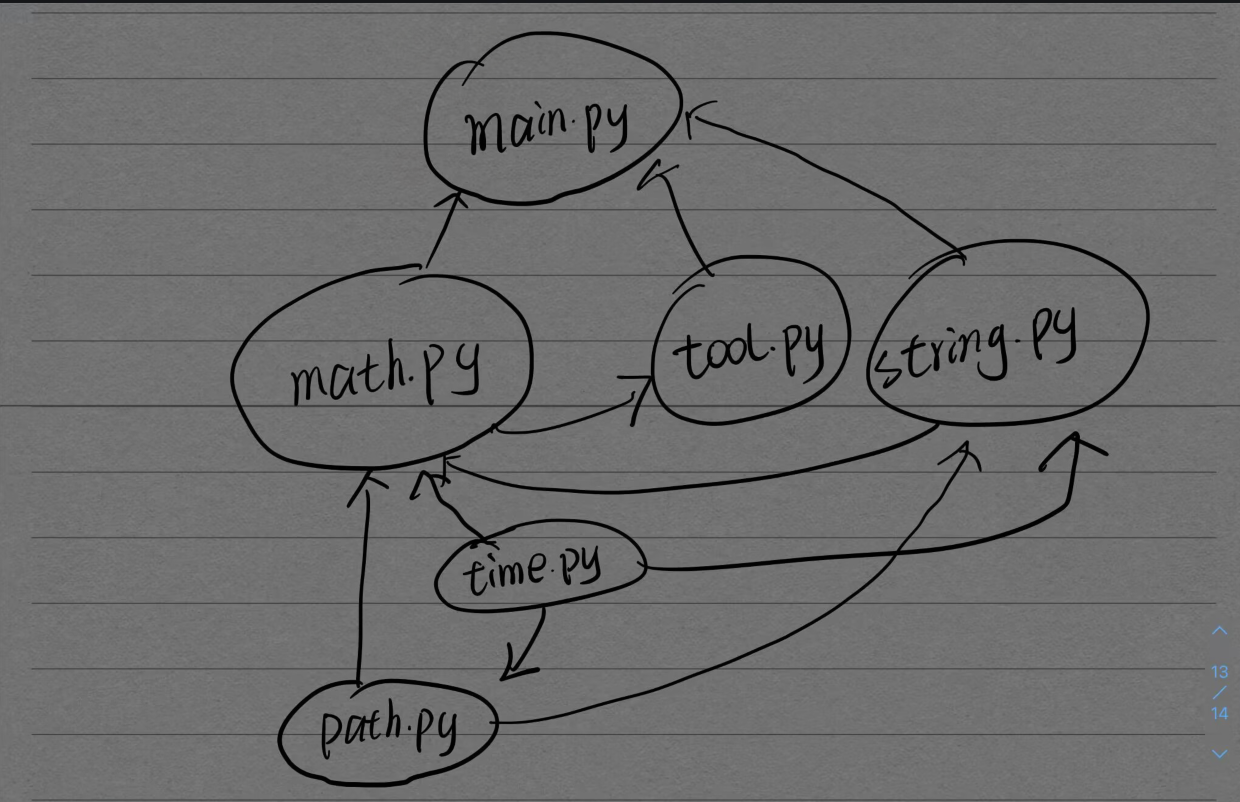 main.py
math.py
tool.py
string.py
time.py
path.py
13
/
14